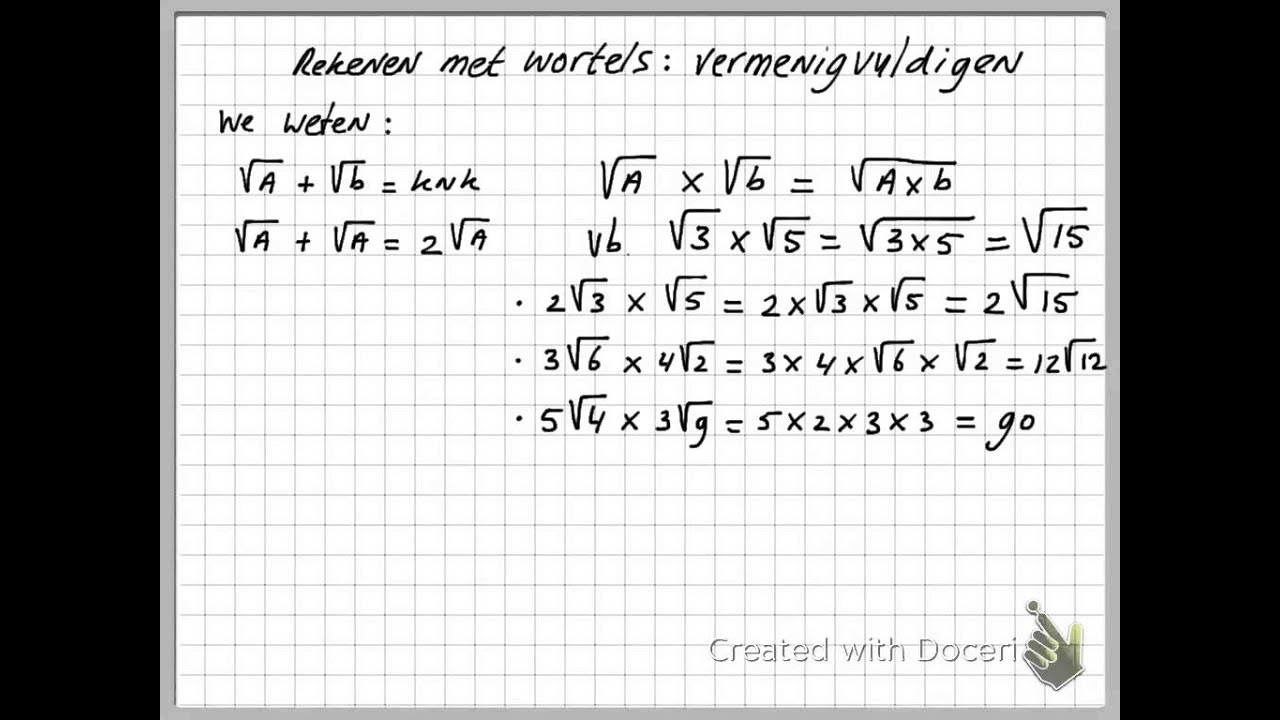 Rekenen met wortels: vermenigvuldigen
We weten:
√A + √b = knk
√A + √A = 2√A
√A × √b = √A×b
vb. √3 × √5 = √3×5 = √15
· 2√3 × √5 = 2×√3×√5 = 2√15
· 3√6 × 4√2 = 3×4×√6×√2 = 12√12
· 5√4 × 3√9 = 5×2×3×3 = 90
Created with Doceri